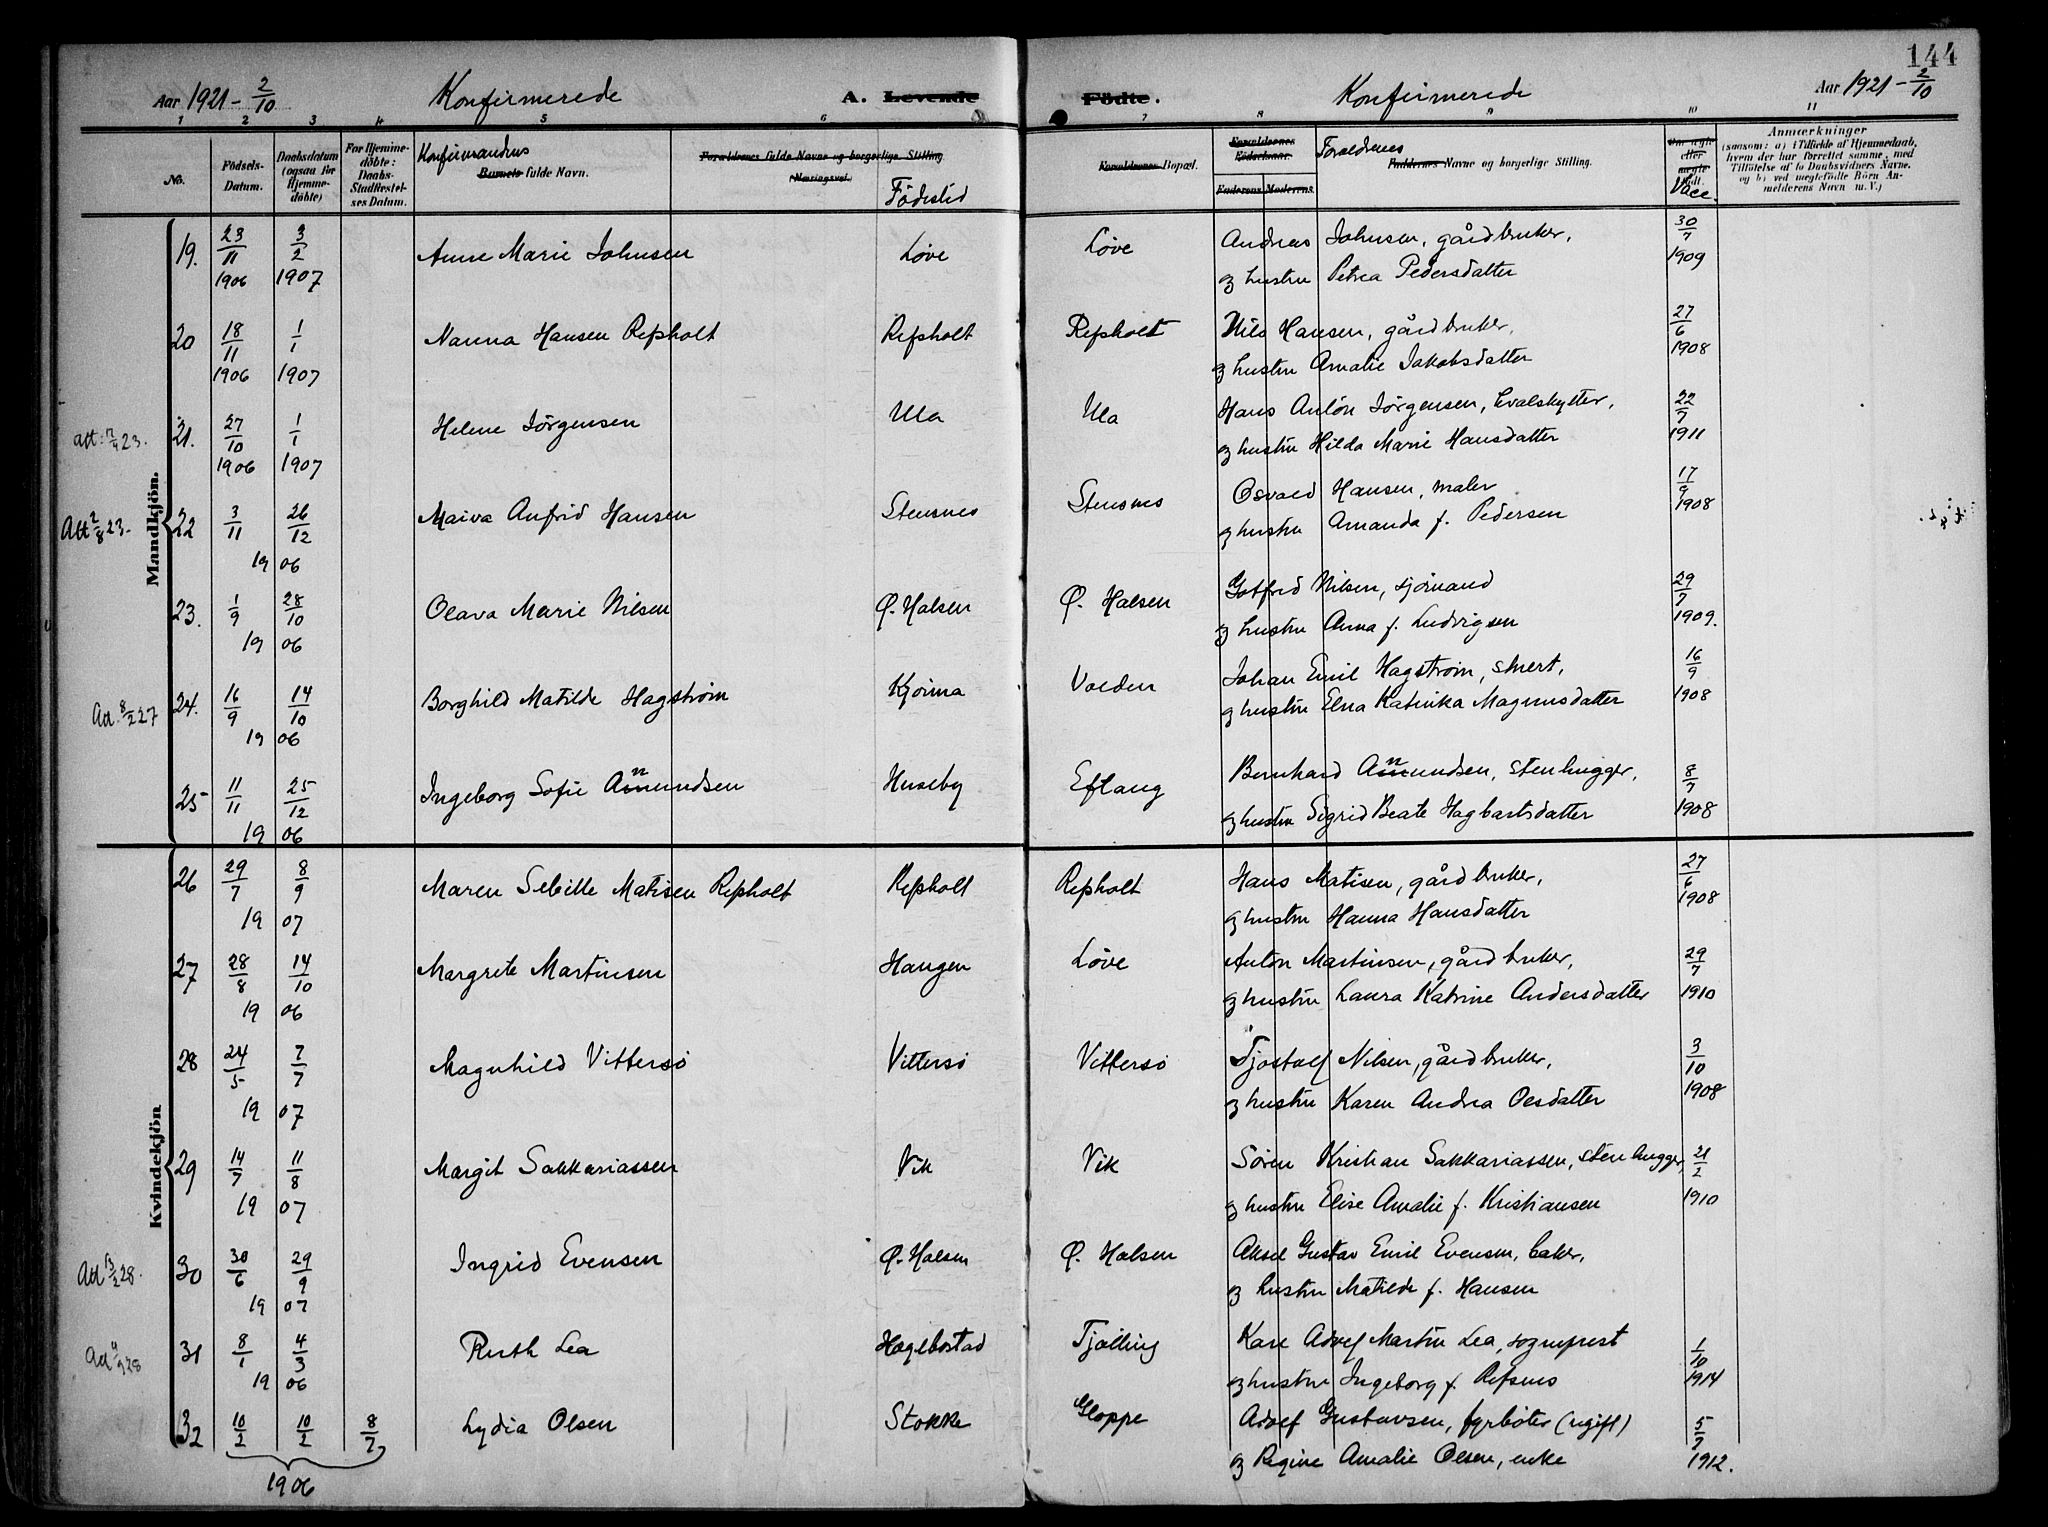 144
Aar 1921 - 2/10 Konfirmerede A. Levende Födte. Konfirmerede Aar 1921 - 2/10
1 2 3 4 5 6 7 8 9 10 11
No. Födsels-Datum. Daabsdatum (ogsaa för Hjemme-döbte) For Hjemme-döbte: Daabs-Stadfæstel-ses Datum. Konfirmandens Barnets fulde Navn. Forældrenes fulde Navne og borgerlige Stilling (Næringsvei.) Födested Forældrenes Bopæl. Forældrenes Födselsaar. Faderens Moderens Forældrenes Faddernes Navne og borgerlige Stilling. Om ægte eller uægte født. Vacc. Anmærkninger (saasom: a) i Tilfælde af Hjemmedaab, hvem der har forrettet samme, med Tilföielse af to Daabsvidners Navne. og b) ved uegtefödte Börn Anmelderens Navn m. V.)
Mandkjön.
19. 23/11 3/2 Anne Marie Johnsen Løve Løve Andreas Johnsen, gårdbruker, 30/7
1906 1907 og hustru Petrea Pedersdatter 1909
20 18/11 1/1 Nanna Hansen Repsholt Repsholt Repsholt Nils Hansen, gårdbruker, 27/6
1906 1907 og hustru Amalie Jakobsdatter 1908
21. 27/10 1/1 Helene Jörgensen Ula Ula Hans Antón Jörgensen, hvalskytter, 22/7
1906 1907 og hustru Hilda Marie Hansdatter 1911
Att 2/8 23. 22 3/11 26/12 Maiva Anfrid Hansen Stensnes Stensnes Osvald Hansen, maler 17/9
19 06 og hustru Amanda f. Pedersen 1908
23. 1/9 28/10 Olava Marie Nilsen Ø. Halsen Ø. Halsen Gotfred Nilsen, sjömand 29/7
19 06 og hustru Anna f. Ludvigsen 1909.
Att. 8/2 27 24. 16/9 14/10 Borghild Matilde Hagström Kjörna Volden Johan Emil Hagström, smed, 16/9
19 06 og hustru Elna Katinka Magnusdatter 1908
25 11/11 25/12 Ingeborg Sofie Anundsen Huseby Eftang Bernhard Anundsen, stenhugger, 8/7
19 06 og hustru Sigrid Beate Hagbartsdatter 1908
Kvindekjön
26 29/7 8/9 Maren Sebille Matisen Repsholt Repsholt Repsholt Hans Matisen, gårdbruker, 27/6
19 07 og hustru Hanna Hansdatter 1908
27 28/8 14/10 Margrete Martinsen Haugen Løve Anton Martinsen, gårdbruker, 29/7
19 06 og hustru Laura Katrine Andersdatter 1910
28 24/5 7/7 Magnhild Vittersö Vittersö Vittersö Tjostolf Nilsen, gårdbruker, 3/10
19 07 og hustru Karen Andrea Olsdatter 1908
29 14/7 11/8 Margit Sakkariassen Vik Vik Sören Kristian Sakkariassen, stenhugger, 21/2
19 07 og hustru Elise Amalie f. Kristiansen 1910
Att 13/2 28. 30 30/6 29/9 Ingrid Evensen Ø. Halsen Ø. Halsen Aksel Gustav Emil Evensen, baker,
19 07 og hustru Matilde f. Hansen
31 8/1 4/3 Ruth Lea Hægebostad Tjölling Karl Adolf Martin Lea, sogneprest 1/10
19 06 og hustru Ingeborg f. Refsnes 1914
32 10/2 10/2 8/7 Lydia Olsen Stokke Gloppe Adolf Gustavsen, fyrböter (ugift) 5/7
1906 og Regine Amalie Olsen, enke 1912.